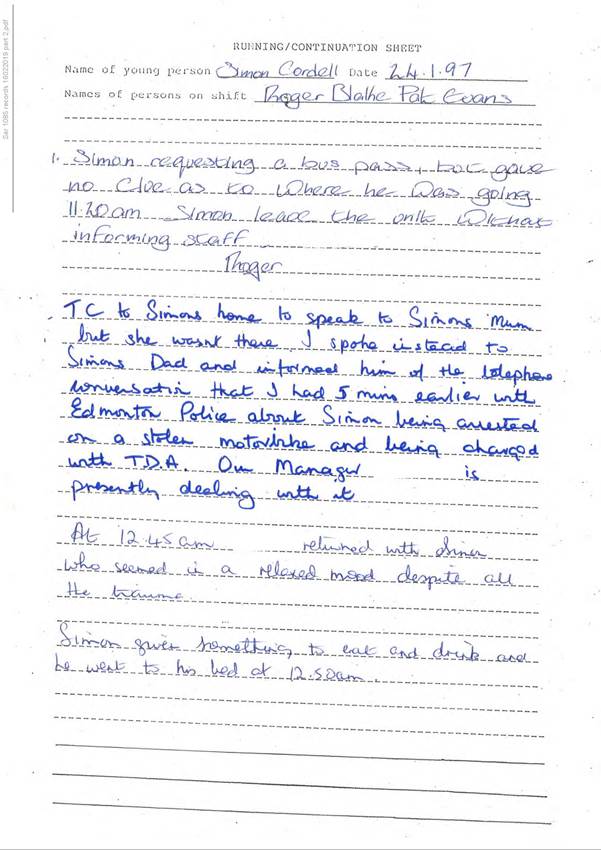 Sar 1085 records 16022019 part 2.pdf
RUNNING/CONTINUATION SHEET
Name of young person Simon Cordell Date 24.1.97
Names of persons on shift Roger Blake Pat Evans
1. Simon requesting a bus pass, but gave
no Cloe as to where he was going
11.20am Simon leave the unit without
informing staff
Roger
TC to Simons home to speak to Simons Mum
but she wasnt there I spoke instead to
Simons Dad and informed him of the telephone
conversation that I had 5 mins earlier with
Edmonton Police about Simon being arrested
on a stolen motorbike and being charged
with T.D.A. Our Manager is
presently dealing with it
At 12.45am returned with Simon
who seemed in a relaxed mood despite all
the trauma
Simon given something to eat and drink and
he went to his bed at 12.50am.